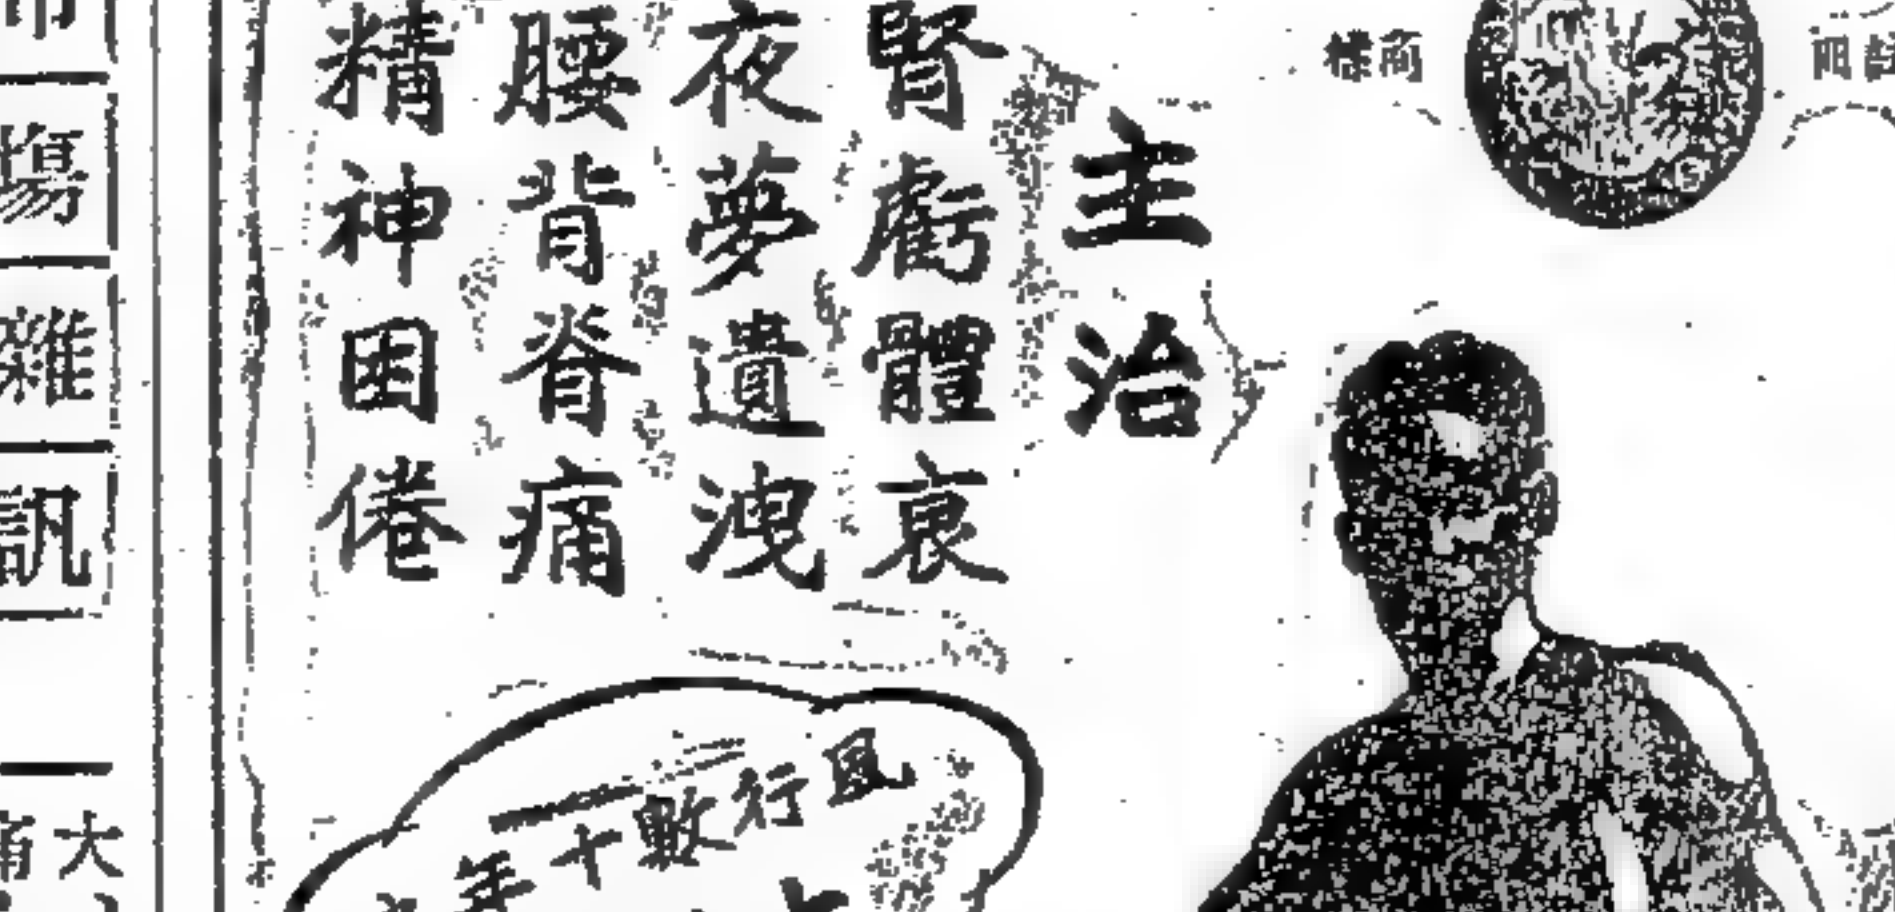 商標
主治
腎虧體衰
夜夢遺洩
腰背脊痛
精神困倦
風行數十年
市場雜訊
大